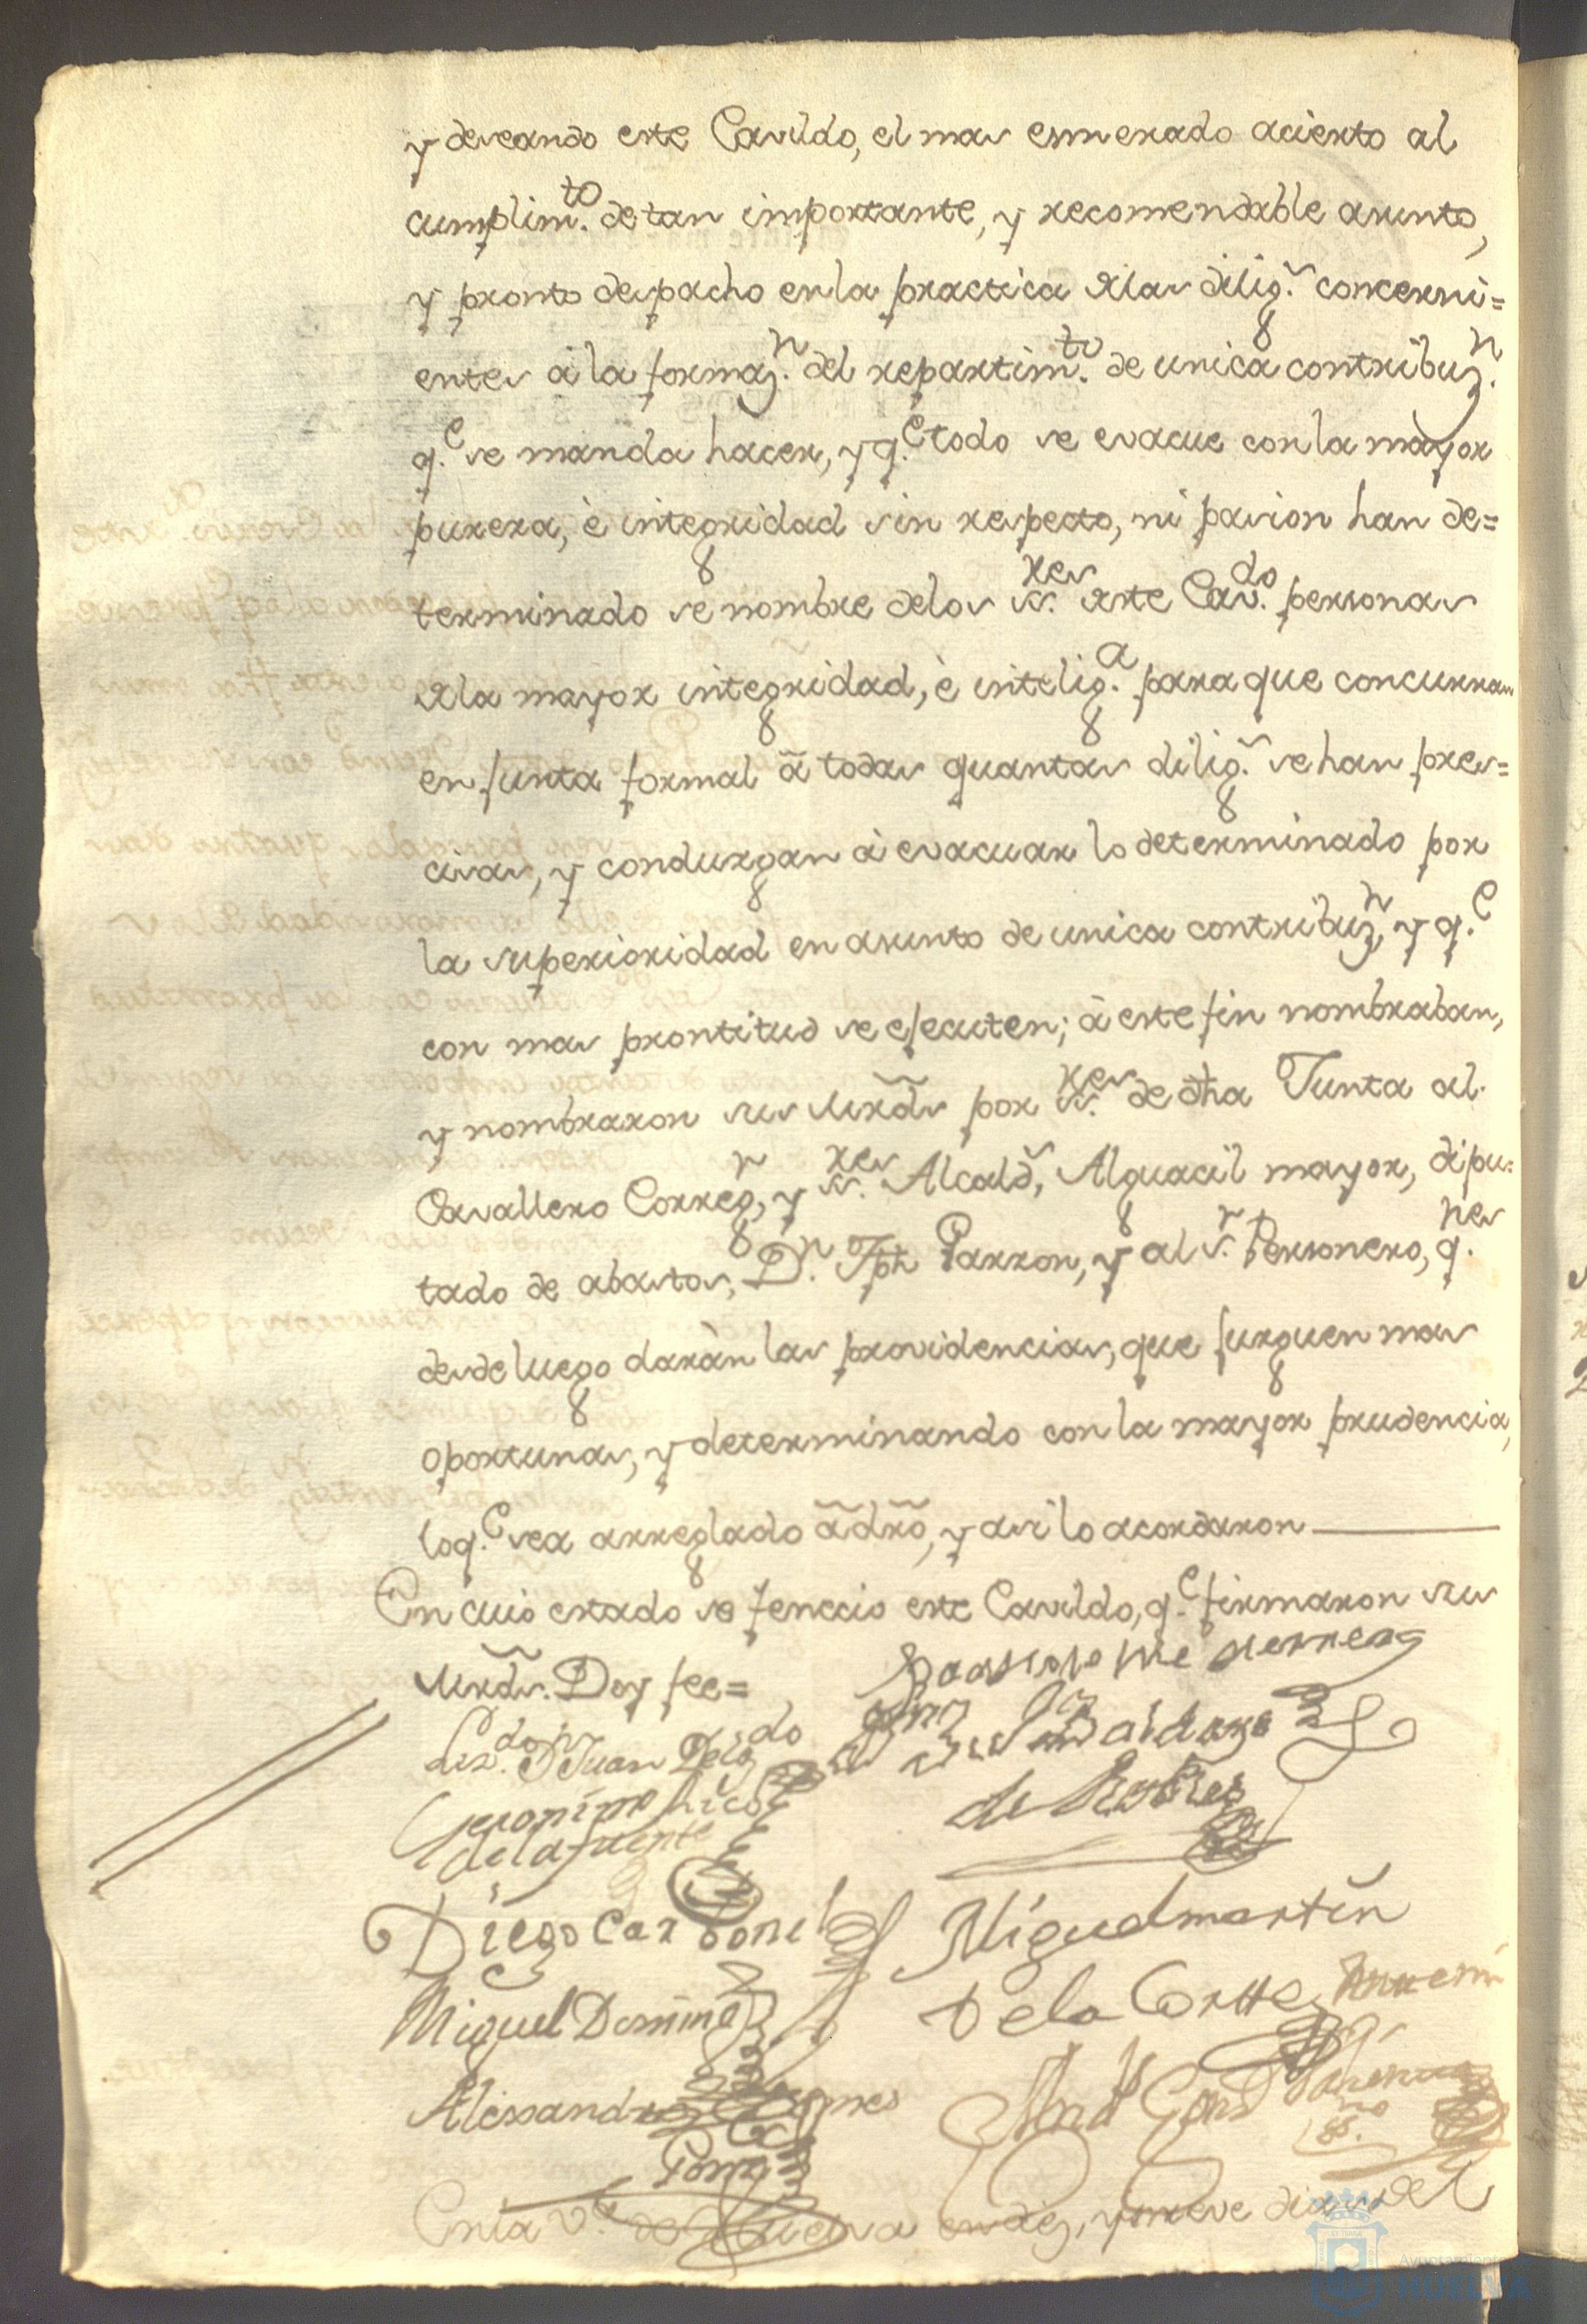 y deseando este Cavildo, el mas esmerado acierto al
cumplim.to de tan importante, y recomendable asunto,
y pronto despacho en la practica de las dilig.s concerni=
entes à la formaz.n del repartim.to de unica contribuz.n
q.e se manda hacer, y q.e todo se evacue con la mayor
pureza, è integridad sin respecto, ni pasion han de=
terminado se nombre de los ss.res de este Cav.do personas
de la mayor integridad, è intelig.a para que concurran
en junta formal à todas quantas dilig.s se han pres=
cisas, y conduzgan à evacuar lo determinado por
la superioridad en asunto de unica contribuz.n, y q.e
con mas prontitud se ejecuten; à este fin nombraban,
y nombraron sus Mrds por ss.res de dha Junta al
Cavallero Correg.r, y ss.res Alcalds, Alguacil mayor, dipu=
tado de abastos, D.n Jph Parron, y al s.r Personero, q.nes
desde luego daràn las providencias, que jusguen mas
oportunas, y determinando con la mayor prudencia,
loq.e sea arreglado à dro, y asi lo acordaron
En cuio estado se fenecio este Cavildo, q.e firmaron sus
Mrds. Doy fee=
Liz.do D.n Juan Delg.do
Geronimo Rico
de la fuente
de Robles
Diego Carbonel
Miguel martin
De la Corte
Miguel Doming
Alessandro
Ponz
En la V.a de Huelva en diez, y nueve dias del
Ayuntamiento
HUELVA